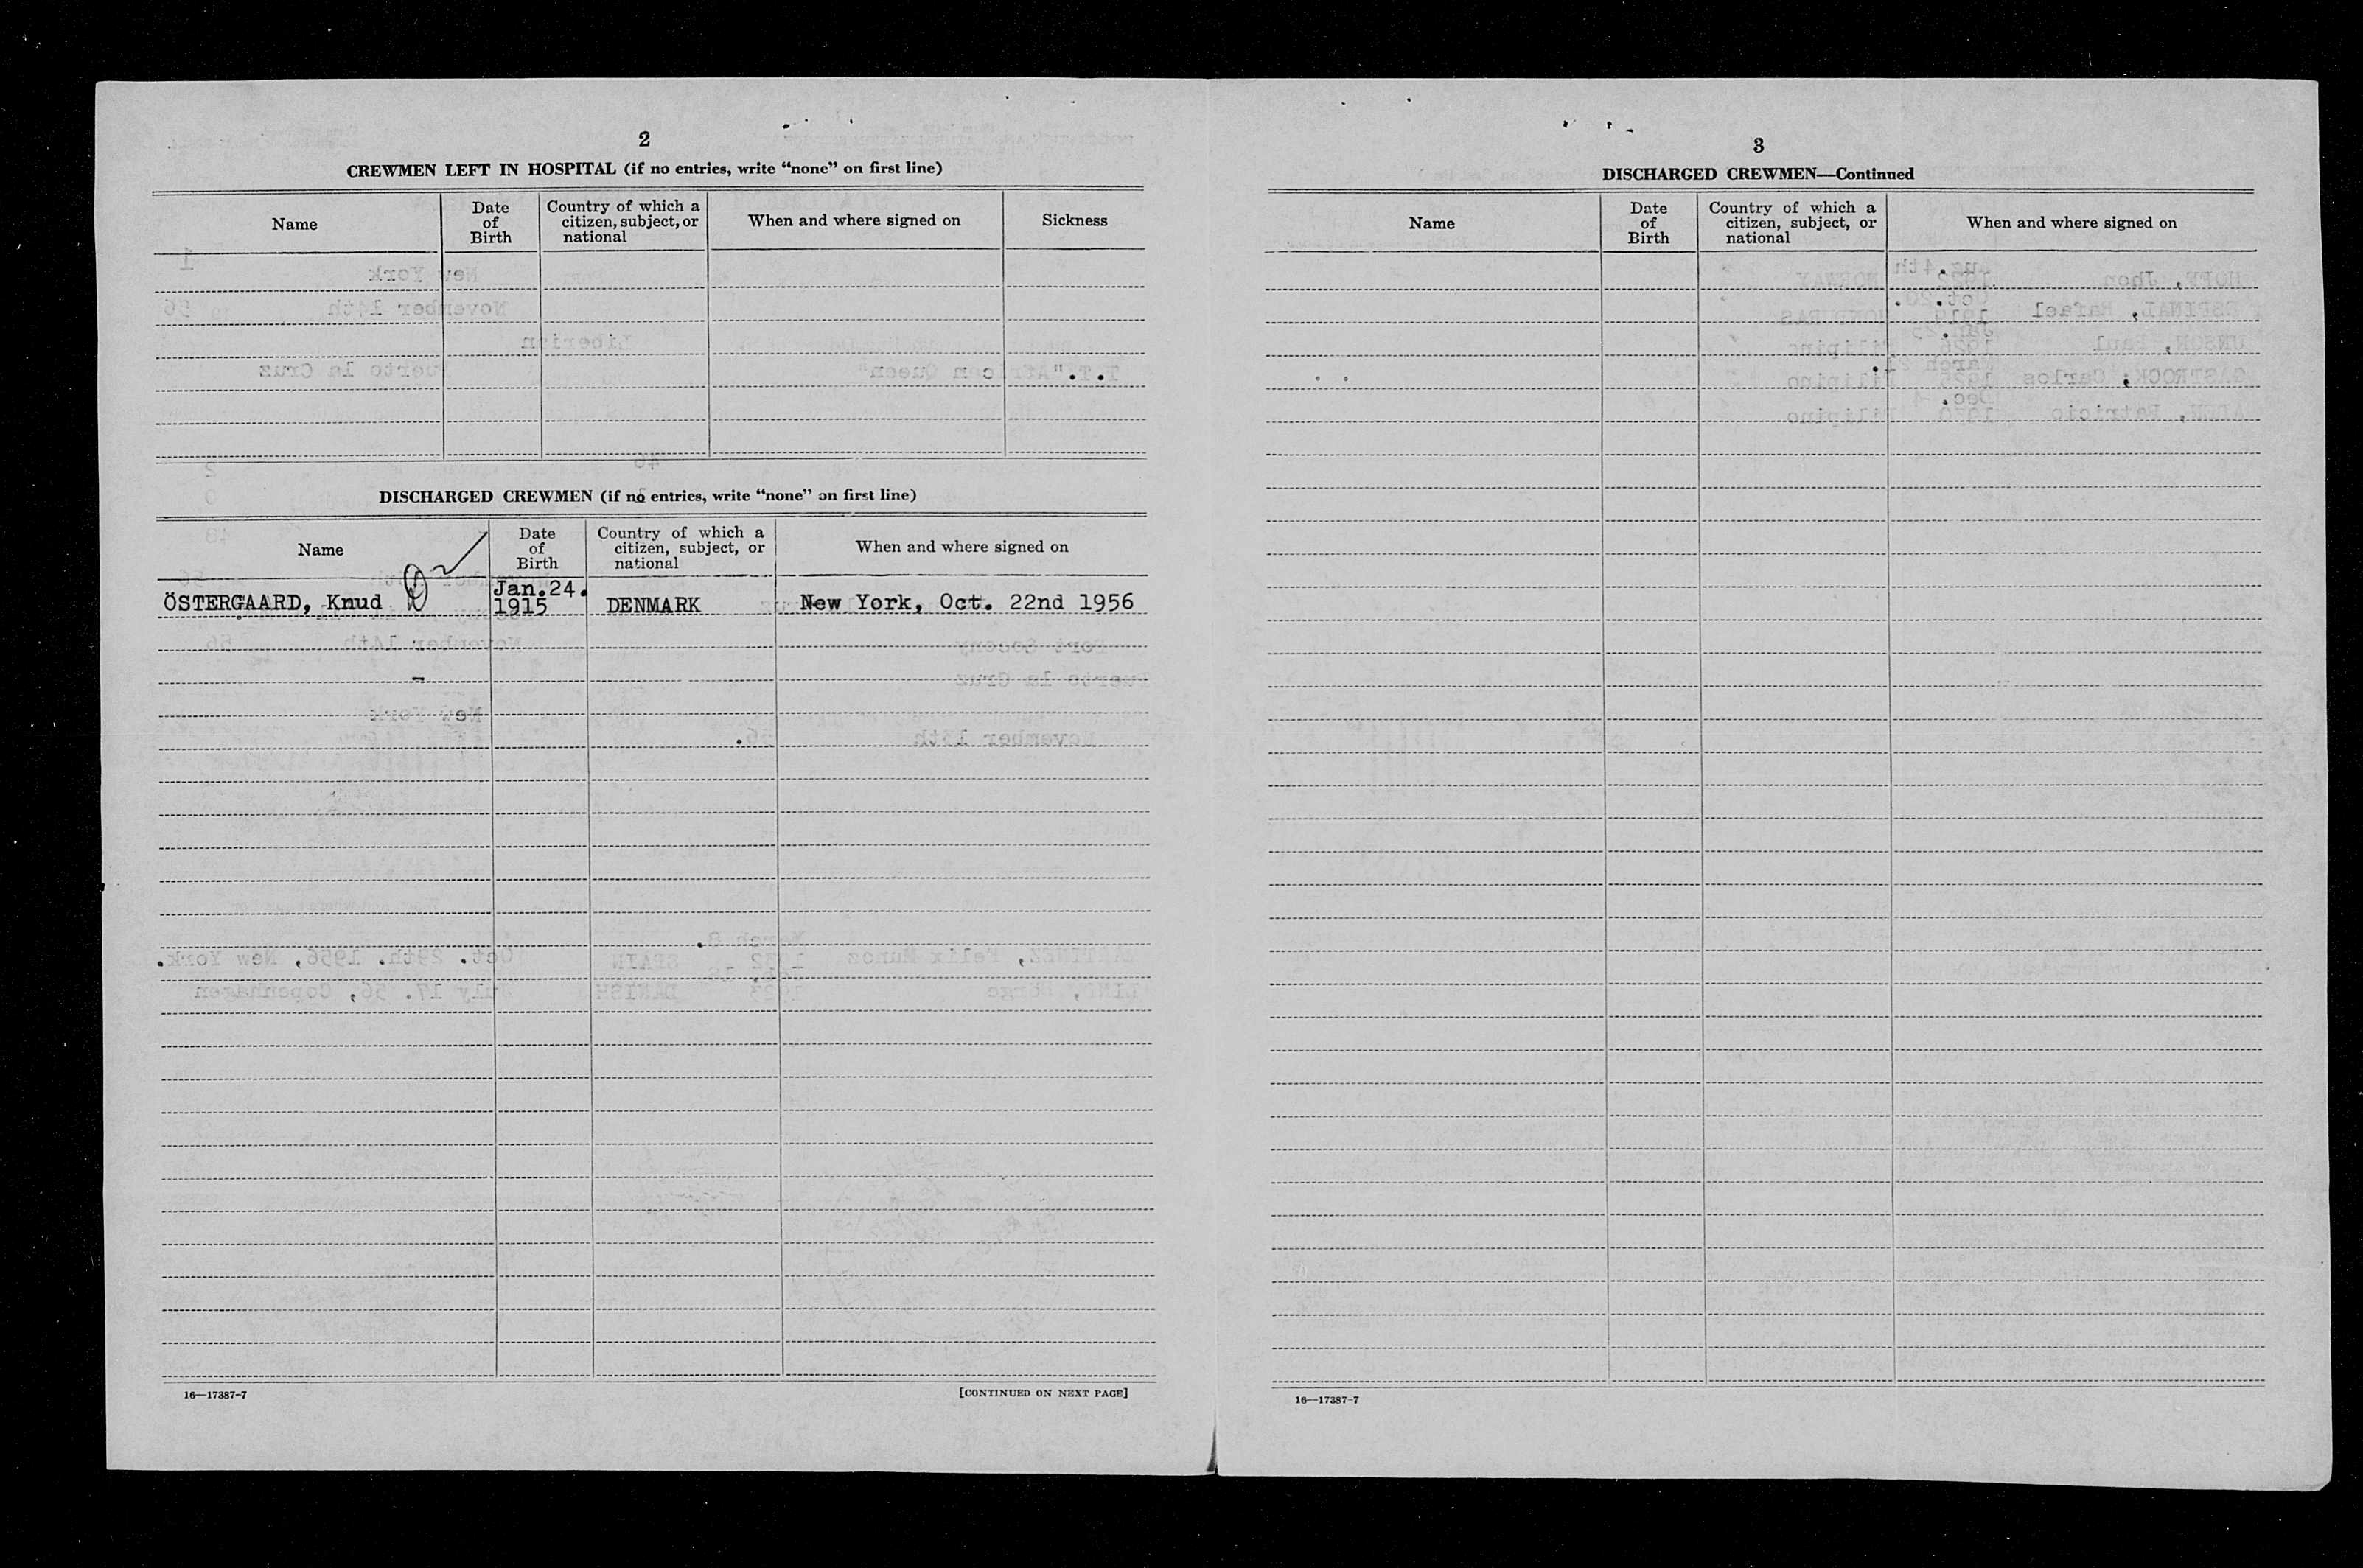 2
CREWMEN LEFT IN HOSPITAL (if no entries, write “none” on first line)
Name
Date of Birth
Country of which a citizen, subject, or national
When and where signed on
Sickness
DISCHARGED CREWMEN (if no entries, write “none” on first line)
Name
Date of Birth
Country of which a citizen, subject, or national
When and where signed on
ÖSTERGAARD, Knud
Jan.24. 1915
DENMARK
New York, Oct. 22nd 1956
16—17387-7
[CONTINUED ON NEXT PAGE]
3
DISCHARGED CREWMEN—Continued
Name
Date of Birth
Country of which a citizen, subject, or national
When and where signed on
16—17387-7